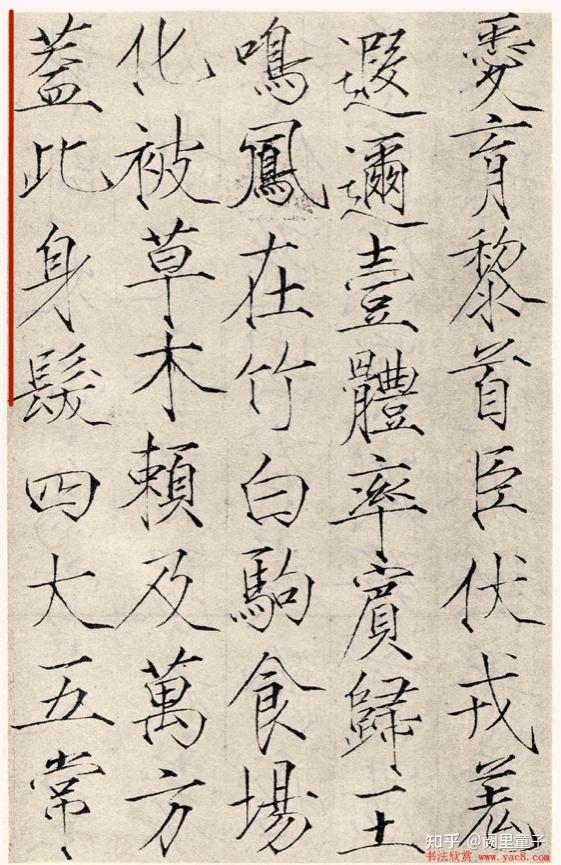 愛育黎首臣伏戎羌
遐邇壹體率賓歸王
鳴鳳在竹白駒食場
化被草木賴及萬方
蓋此身髮四大五常
知乎 @阙里童子
书法欣赏 www.yac8.com